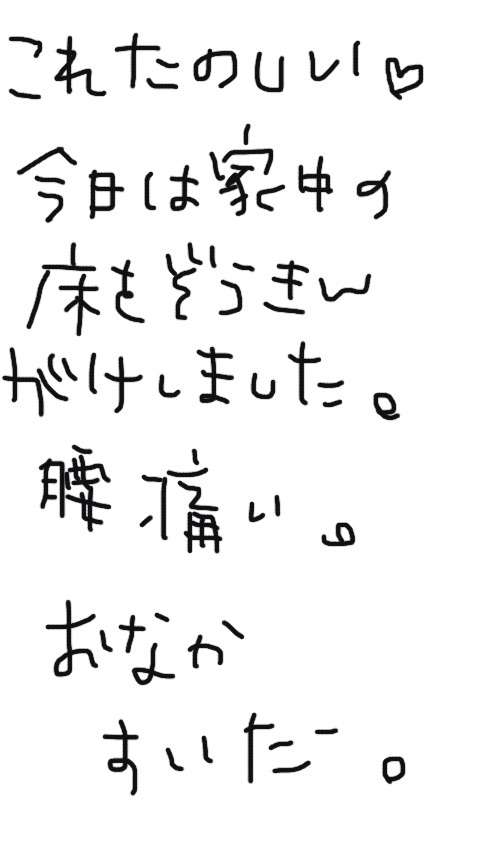 これたのしい♡
今日は家中の
床をぞうきん
がけしました。
腰痛い。
おなか
すいたー。